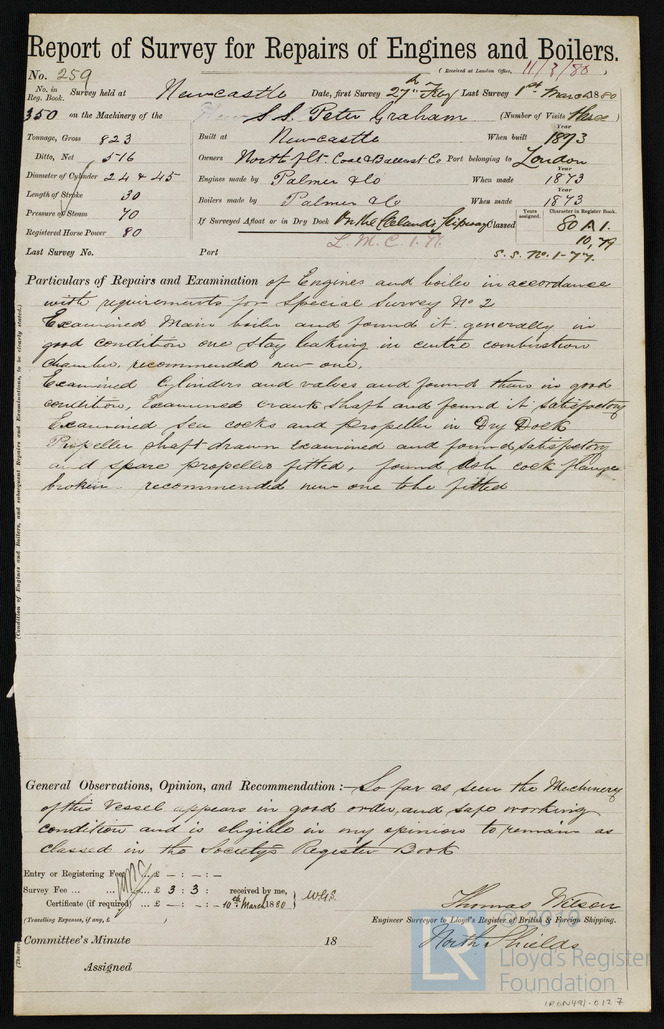 Report of Survey for Repairs of Engines and Boilers.
No. 259 (Received at London Office, 11/3/80)
No. in Reg. Book. Survey held at Newcastle Date, first Survey 27th Feby Last Survey 1st March 1880
350 on the Machinery of the S.S. Peter Graham (Number of Visits three)
Tonnage, Gross 823 Built at Newcastle When built Year 1873
Ditto, Net 516 Owners North Coal & Ballast Co Port belonging to London
Diameter of Cylinder 24 & 45 Engines made by Palmer & Co When made Year 1873
Length of Stroke 30 Boilers made by Palmer & Co When made Year 1873
Pressure of Steam 70 If Surveyed Afloat or in Dry Dock On the Clelands Slipway Classed Years assigned. Character in Register Book. 80 A 1.
Registered Horse Power 80 L. M. C. 1. 10,79
Last Survey No. Port S. S. No. 1-77.
Particulars of Repairs and Examination of Engines and boiler in accordance
with requirements for Special Survey No 2
Examined Main boiler and found it generally in
good condition one stay leaking in centre combustion
chamber, recommended new one.
Examined Cylinders and valves and found them in good
condition, Examined crank shaft and found it satisfactory
Examined sea cocks and propeller in Dry Dock
Propeller shaft drawn examined and found satisfactory
and spare propeller fitted, found Ash cock flange
broken recommended new one to be fitted
(Condition of Engines and Boilers, and subsequent Repairs and Examinations, to be clearly stated.)
General Observations, Opinion, and Recommendation :— So far as seen the Machinery
of this Vessel appears in good order, and safe working
condition and is eligible in my opinion to remain as
classed in the Society's Register Book
Entry or Registering Fee £ — : — : —
Survey Fee ... £ 3 : 3 : received by me,
Certificate (if required) ... £ — : — : — 10th March 1880 W.G.S.
(Travelling Expenses, if any, £ )
Thomas Wilson
Engineer Surveyor to Lloyd's Register of British & Foreign Shipping.
North Shields
Committee's Minute 18
Assigned
© 2019
LR
Lloyd's Register
Foundation
IRON491-0127